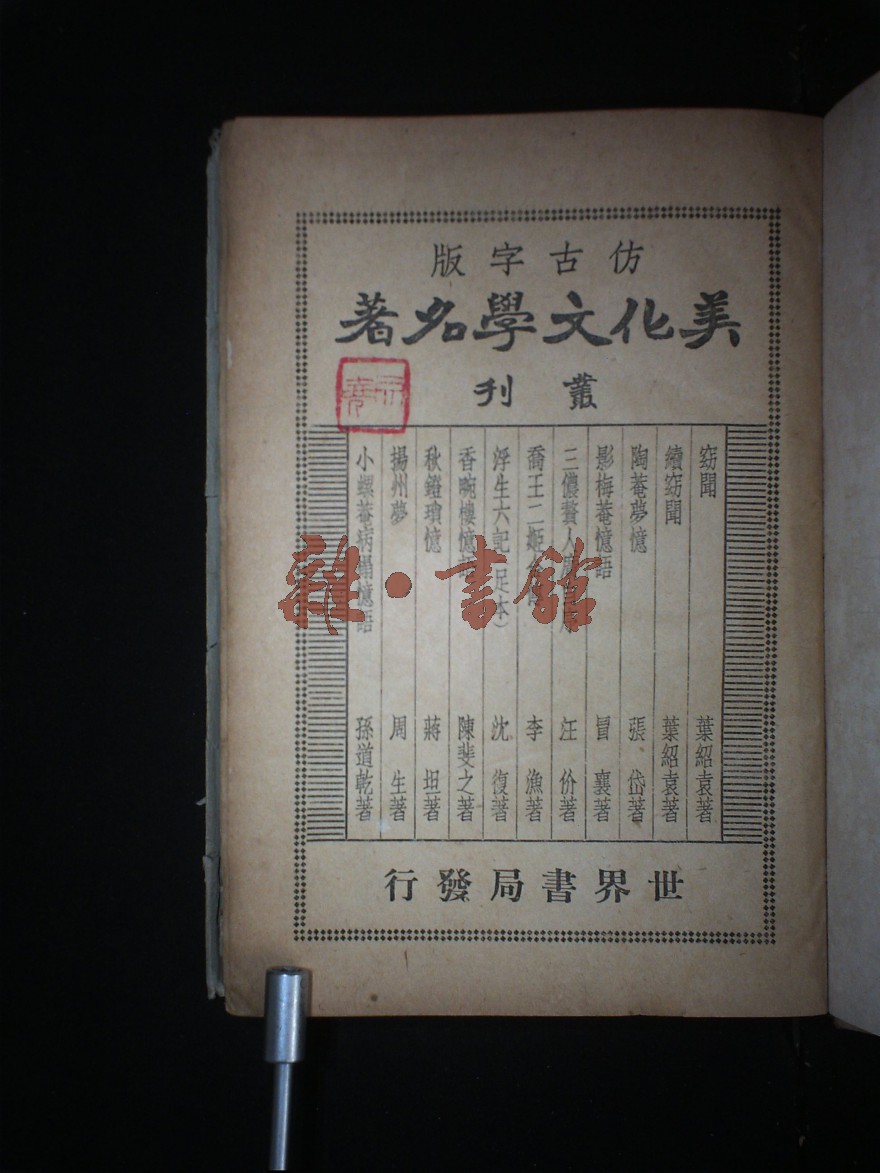 仿古字版
美化文學名著
叢刊
窈聞 葉紹袁著
續窈聞 葉紹袁著
陶菴夢憶 張岱著
影梅菴憶語 冒襄著
三儂贅人廣自序 汪价著
喬王二姬合傳 李漁著
浮生六記（足本） 沈復著
香畹樓憶語 陳斐之著
秋鐙瑣憶 蔣坦著
揚州夢 周生著
小螺菴病榻憶語 孫道乾著
世界書局發行
雜·書館